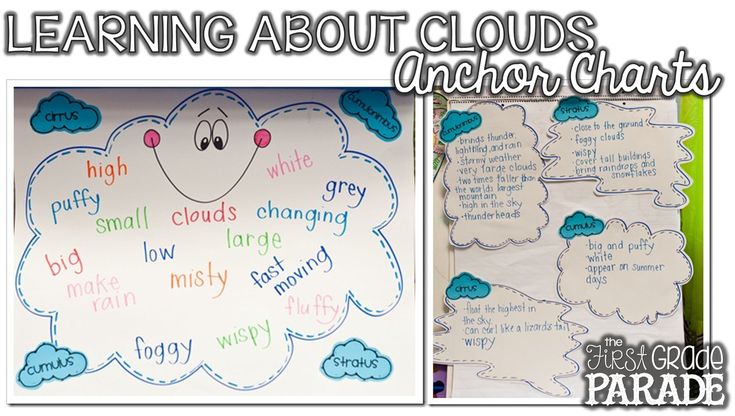 LEARNING ABOUT CLOUDS
Anchor Charts
cirrus
cumulonimbus
high
white
puffy
grey
small clouds changing
low
large
big
make
rain
misty
fast
moving
fluffy
foggy
wispy
cumulus
stratus
cumulonimbus
·brings thunder,
lightning, and rain
·stormy weather
·very large clouds
·two times taller than
the worlds largest
mountain
·high in the sky
·thunderheads
stratus
·close to the ground
·foggy clouds
·wispy
·cover tall buildings
·bring raindrops and
snowflakes
cumulus
·big and puffy
·white
·appear on summer
days
cirrus
·float the highest in
the sky
·can curl like a lizard's tail
·wispy
the
First Grade
PARADE